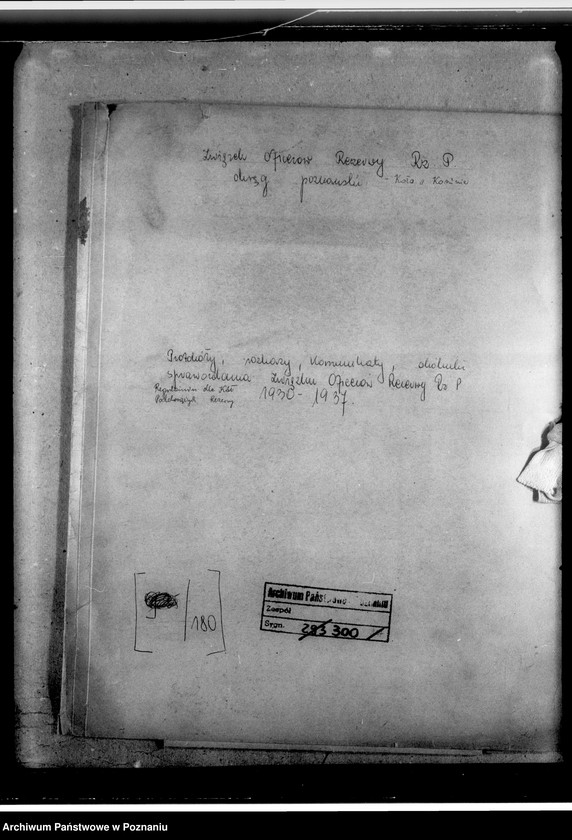 Związek Oficerów Rezerwy Rz P
okręg poznański - Koło w
rozkazy, komunikaty, okólniki
sprawozdania Związku Oficerów Rezerwy Rz P
Regulamin dla Kół
Rezerwy
1930 - 1937.
180
Archiwum Państwowe
Zespół
Sygn. 293 300
Archiwum Państwowe w Poznaniu